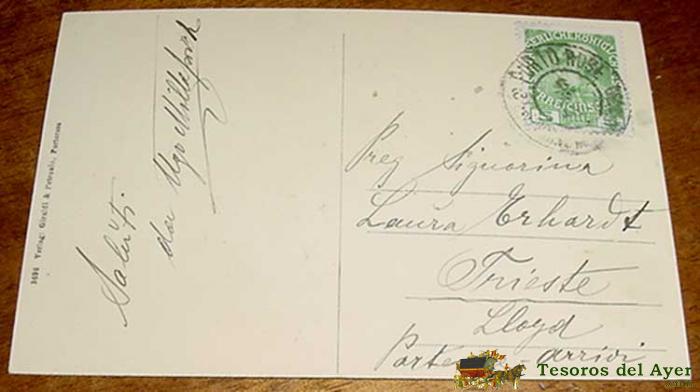 Saluti
da Ugo
3694 Verlag: Giraldi & Petronio, Portorose
PORTO ROSE
5
Preg Signorina
Laura Erhardt
Trieste
Lloyd
arrivi
Tesoros del Ayer
.com